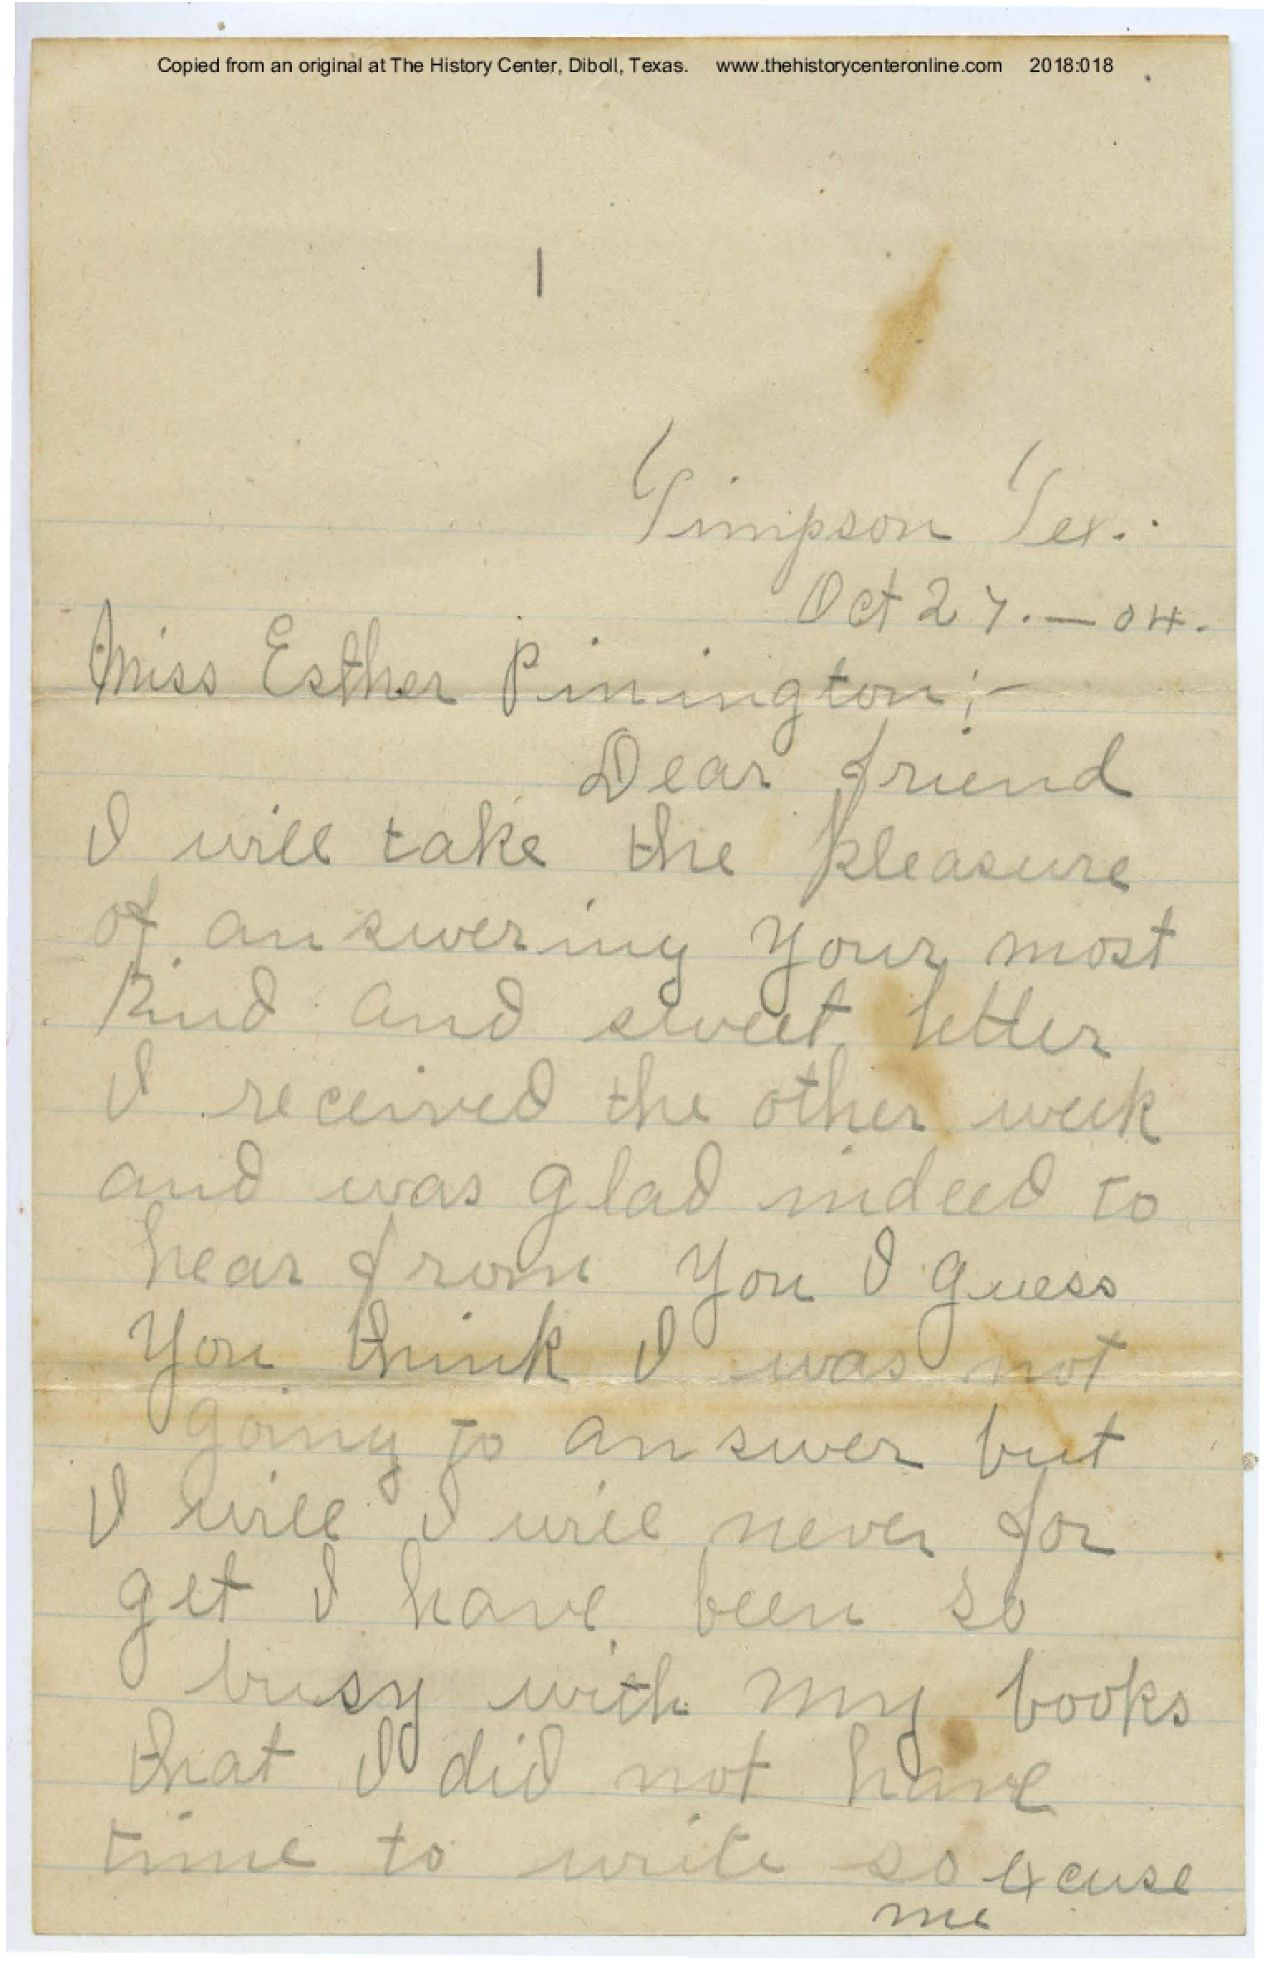 Copied from an original at The History Center, Diboll, Texas. www.thehistorycenteronline.com 2018:018
1
Timpson Tex.
Oct 27. — 04.
Miss Esther Pinington;—
Dear friend
I will take the pleasure
of answering your most
kind and sweet letter
I received the other week
and was glad indeed to
hear from you I guess
you think I was not
going to answer but
I will I will never for
get I have been so
busy with my books
that I did not have
time to write so excuse
me